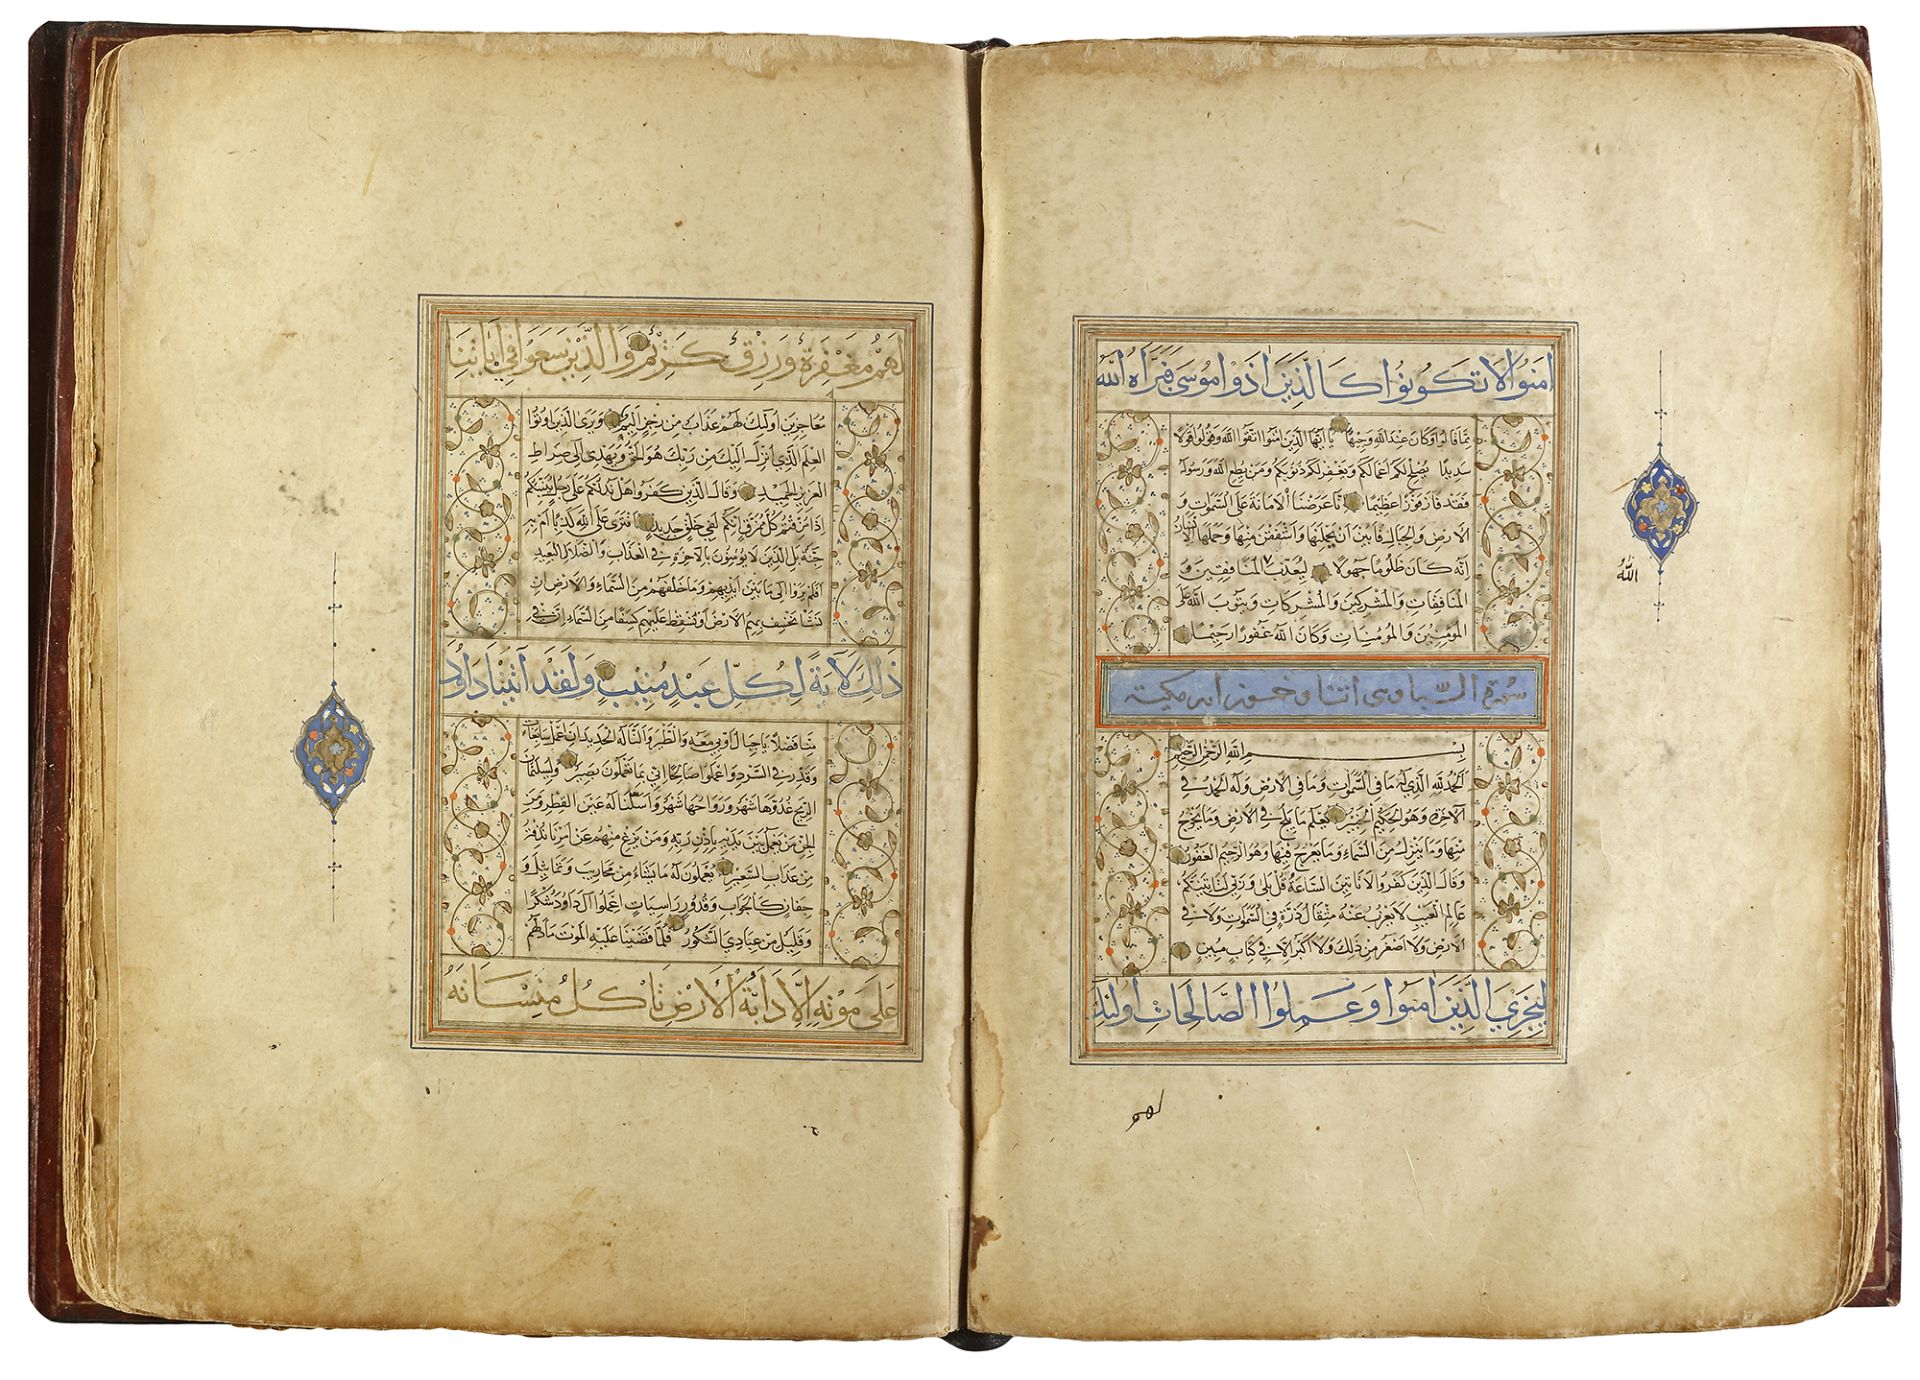 امنوا لا تكونوا كالذين اذوا موسى فبراه الله
مما قالوا وكان عند الله وجيها يا ايها الذين امنوا اتقوا الله وقولوا قولا
سديدا يصلح لكم اعمالكم ويغفر لكم ذنوبكم ومن يطع الله ورسوله
فقد فاز فوزا عظيما انا عرضنا الامانة على السموات و
الارض والجبال فابين ان يحملنها واشفقن منها وحملها الانسان
انه كان ظلوما جهولا ليعذب الله المنافقين و
المنافقات والمشركين والمشركات ويتوب الله على
المؤمنين والمؤمنات وكان الله غفورا رحيما
سورة السبا وهى اثنا وخمسون اية مكية
بسم الله الرحمن الرحيم
الحمد لله الذي له ما في السموات وما في الارض وله الحمد في
الآخرة وهو الحكيم الخبير يعلم ما يلج في الارض وما يخرج
منها وما ينزل من السماء وما يعرج فيها وهو الرحيم الغفور
وقال الذين كفروا لا تاتينا الساعة قل بلى وربي لتاتينكم
عالم الغيب لا يعزب عنه مثقال ذرة في السموات ولا في
الارض ولا اصغر من ذلك ولا اكبر الا في كتاب مبين
ليجزي الذين امنوا وعملوا الصالحات اولئك
لهم
الله
لهم مغفرة ورزق كريم والذين سعوا في اياتنا
معاجزين اولئك لهم عذاب من رجز اليم ويرى الذين اوتوا
العلم الذي انزل اليك من ربك هو الحق ويهدي الى صراط
العزيز الحميد وقال الذين كفروا هل ندلكم على رجل ينبئكم
اذا مزقتم كل ممزق انكم لفي خلق جديد افترى على الله كذبا ام به
جنة بل الذين لا يؤمنون بالاخرة في العذاب والضلال البعيد
افلم يروا الى ما بين ايديهم وما خلفهم من السماء والارض ان
نشا نخسف بهم الارض او نسقط عليهم كسفا من السماء ان في
ذلك لاية لكل عبد منيب ولقد آتينا داود
منا فضلا يا جبال اوبي معه والطير والنا له الحديد ان اعمل سابغات
وقدر في السرد واعملوا صالحا اني بما تعملون بصير ولسليمان
الريح غدوها شهر ورواحها شهر واسلنا له عين القطر ومن
الجن من يعمل بين يديه باذن ربه ومن يزغ منهم عن امرنا نذقه
من عذاب السعير يعملون له ما يشاء من محاريب وتماثيل و
جفان كالجواب وقدور راسيات اعملوا آل داود شكرا
وقليل من عبادي الشكور فلما قضينا عليه الموت ما دلهم
على موته الا دابة الارض تاكل منساته